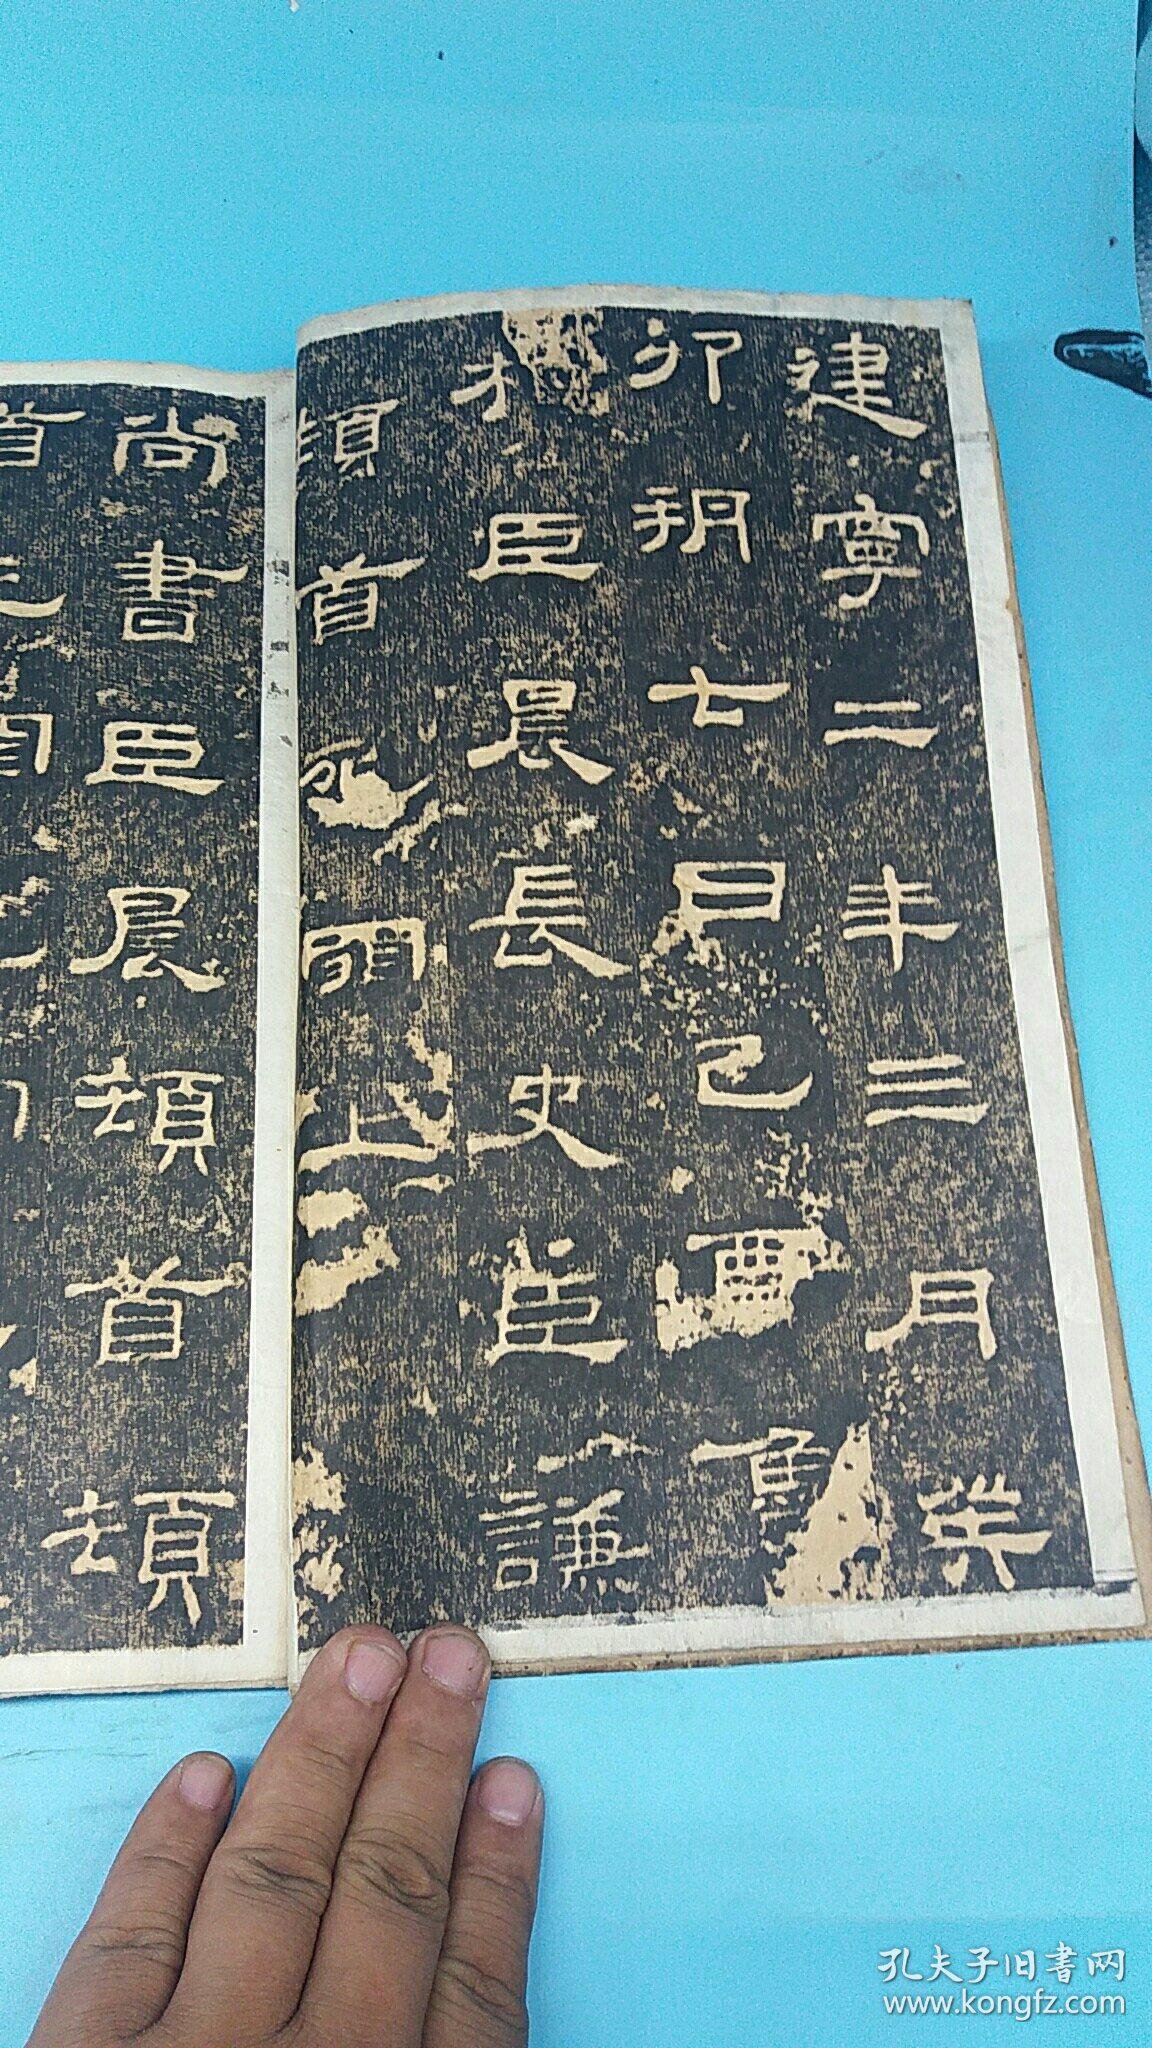 建寧二年三月癸
卯朔七日己酉魯
相臣晨長史臣謙
頓首死罪上
尚書臣晨頓首頓
首死罪死罪
孔夫子旧书网
www.kongfz.com